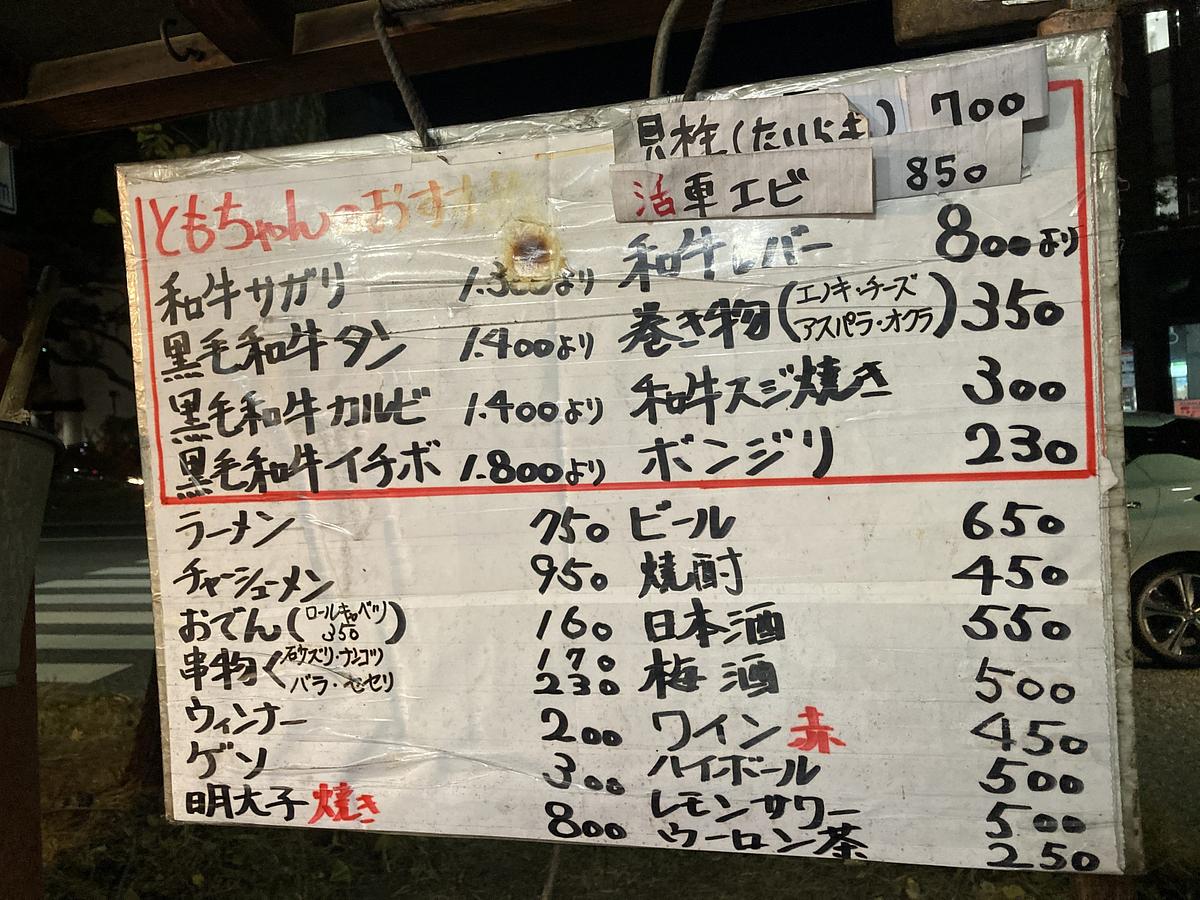 ともちゃんのおすすめ
和牛サガリ 1.300より
黒毛和牛タン 1.400より
黒毛和牛カルビ 1.400より
黒毛和牛イチボ 1.800より
貝柱(たいらぎ) 700
活車エビ 850
和牛レバー 800より
巻き物(エノキ・チーズ
アスパラ・オクラ) 350
和牛スジ焼き 300
ボンジリ 230
ラーメン 750
チャーシューメン 950
おでん(ロールキャベツ 350) 160
串物く砂ズリ・ナンコツ 170
バラ・セセリ 230
ウィンナー 200
ゲソ 300
明太子焼き 800
ビール 650
焼酎 450
日本酒 550
梅酒 500
ワイン赤 450
ハイボール 500
レモンサワー 500
ウーロン茶 250